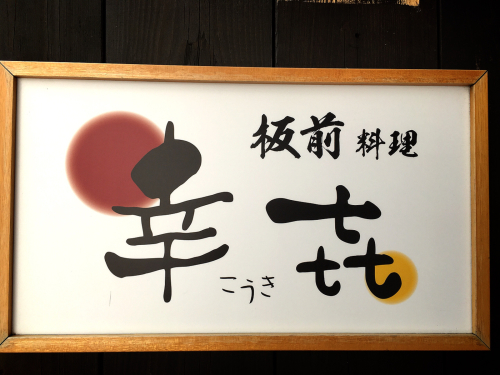 板前 料理
幸㐂
こうき